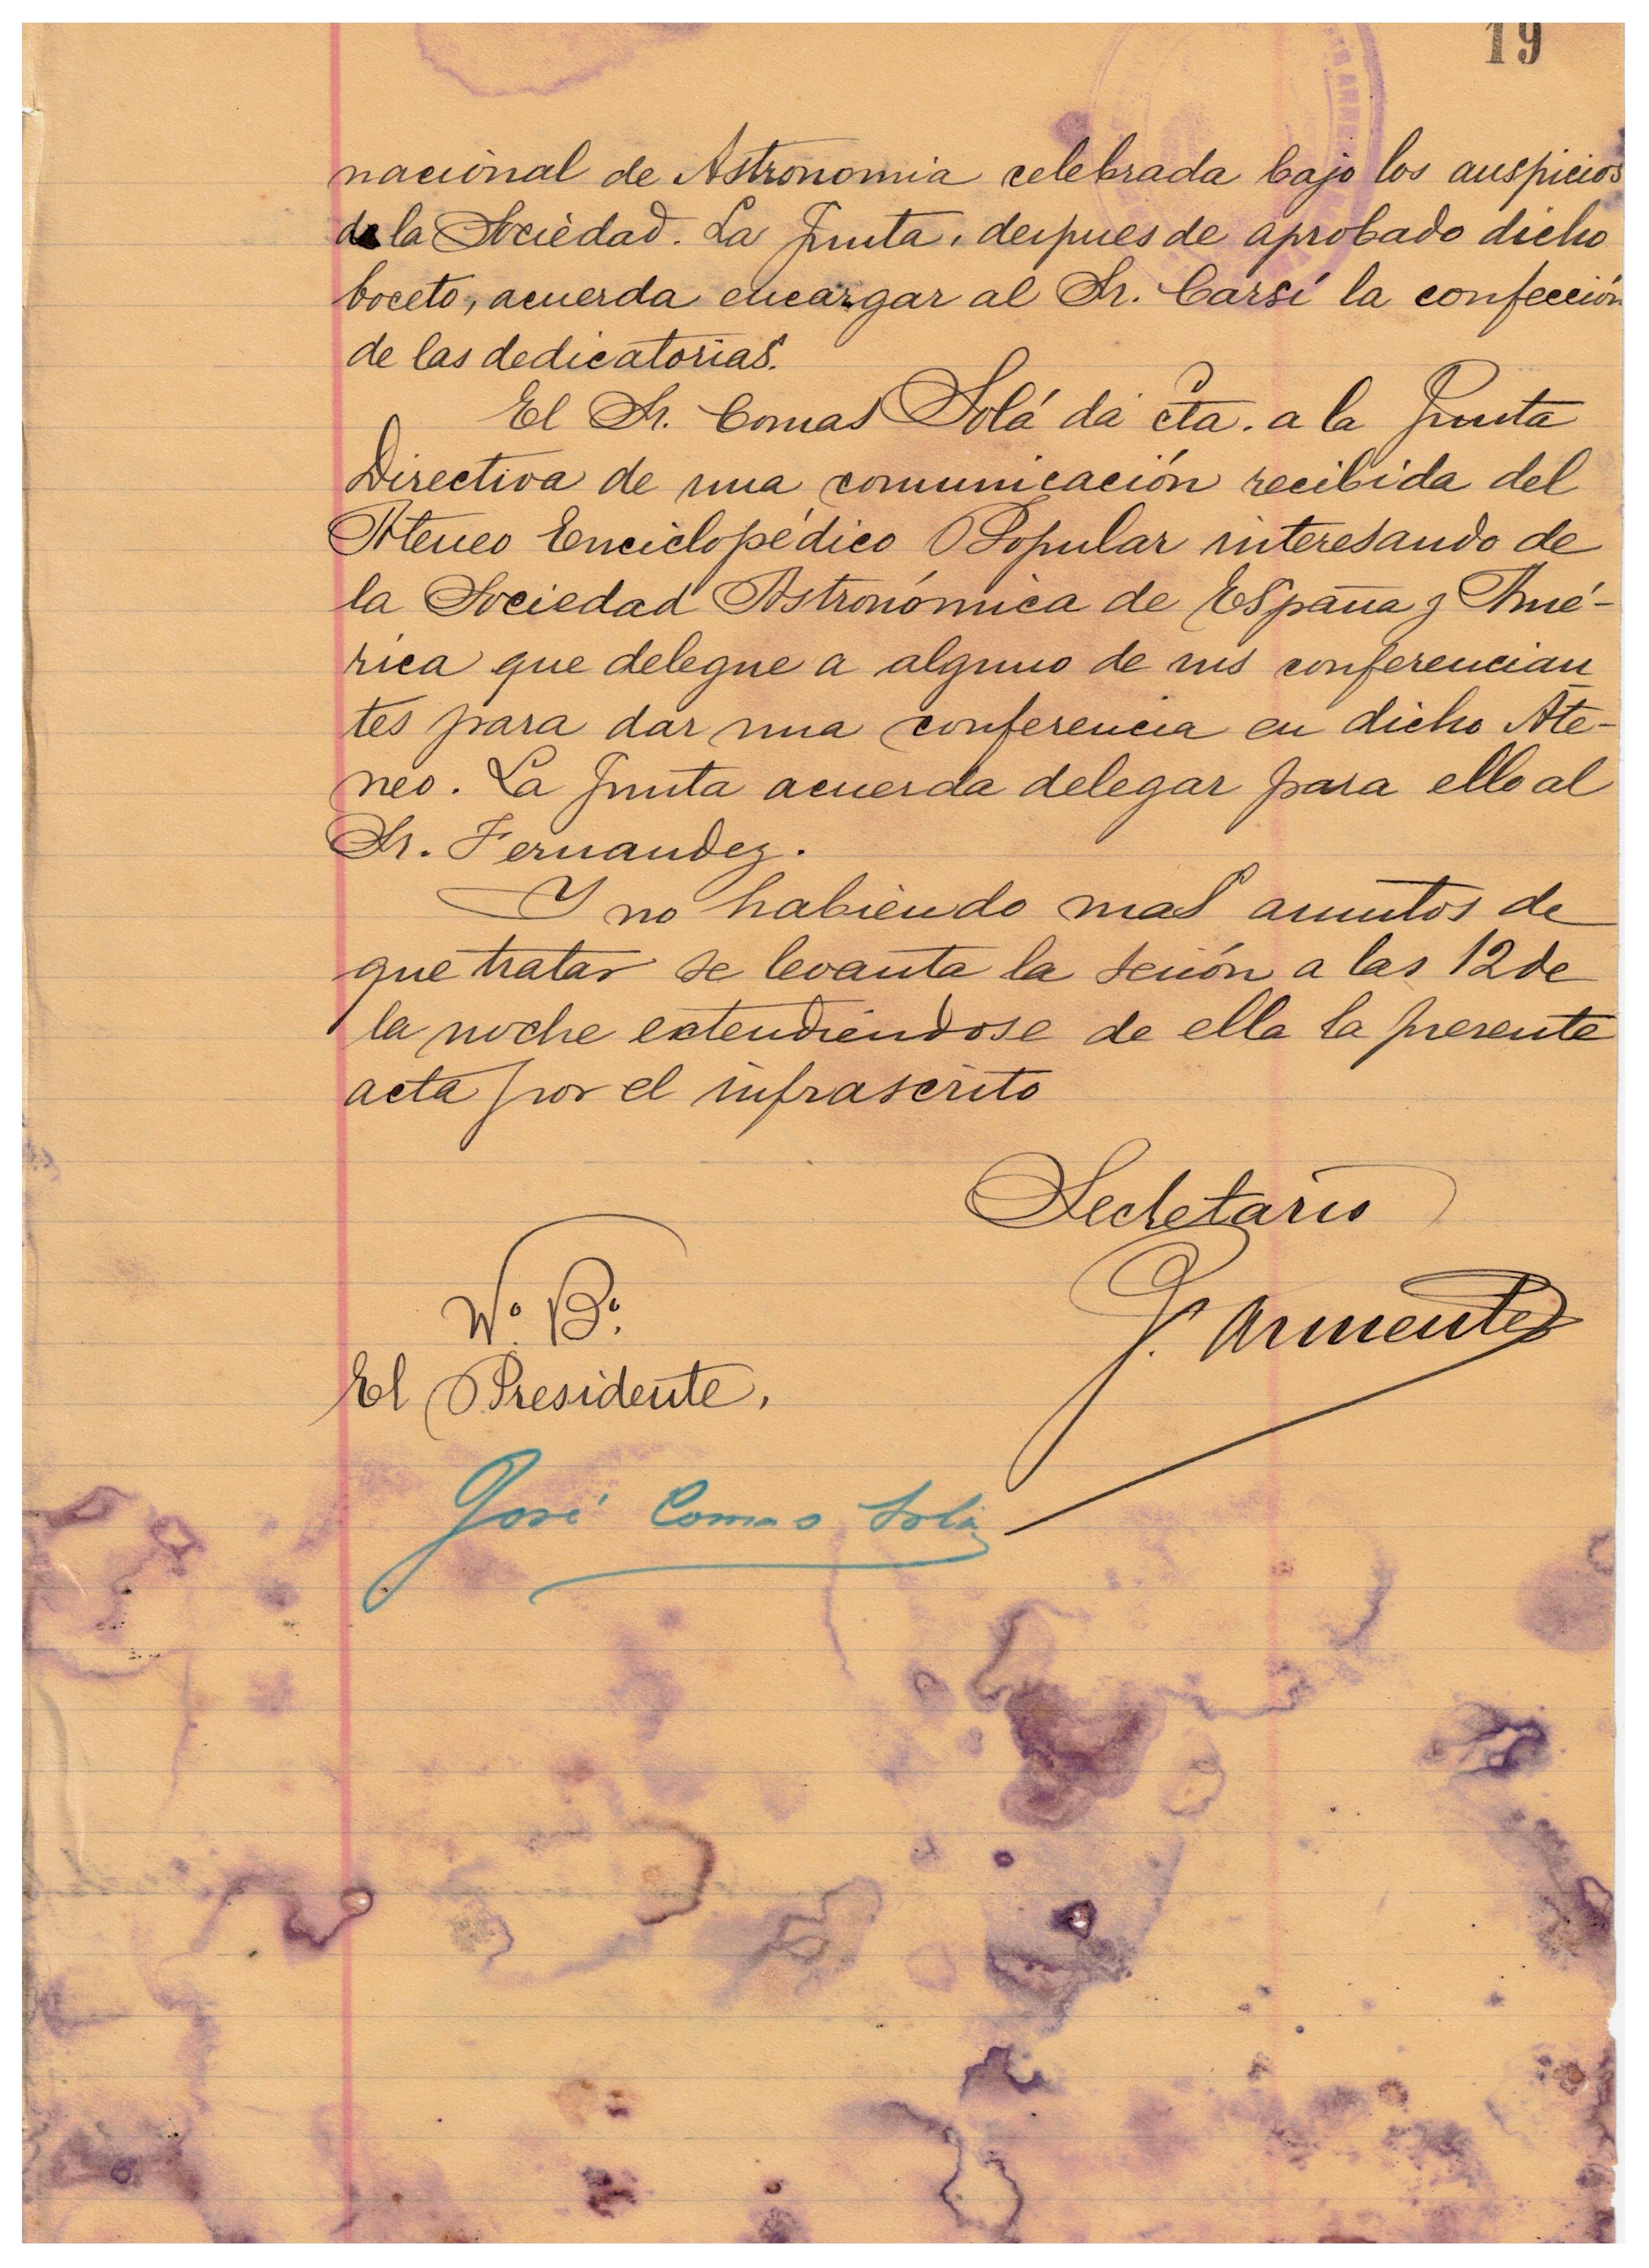 19
nacional de Astronomia celebrada bajo los auspicios
de la Sociedad. La Junta, despues de aprobado dicho
boceto, acuerda encargar al Sr. Carsí la confección
de las dedicatorias.
El Sr. Comas Solá dá cta. a la Junta
Directiva de una comunicación recibida del
Ateneo Enciclopédico Popular interesando de
la Sociedad Astronómica de España y Amé-
rica que delegue a alguno de sus conferencian
tes para dar una conferencia en dicho Ate-
neo. La Junta acuerda delegar para ello al
Sr. Fernandez.
Y no habiendo mas asuntos de
que tratar se levanta la sesión a las 12 de
la noche extendiéndose de ella la presente
acta por el infrascrito
Secretario
V.º B.º
J. Armenter
El Presidente,
José Comas Solá